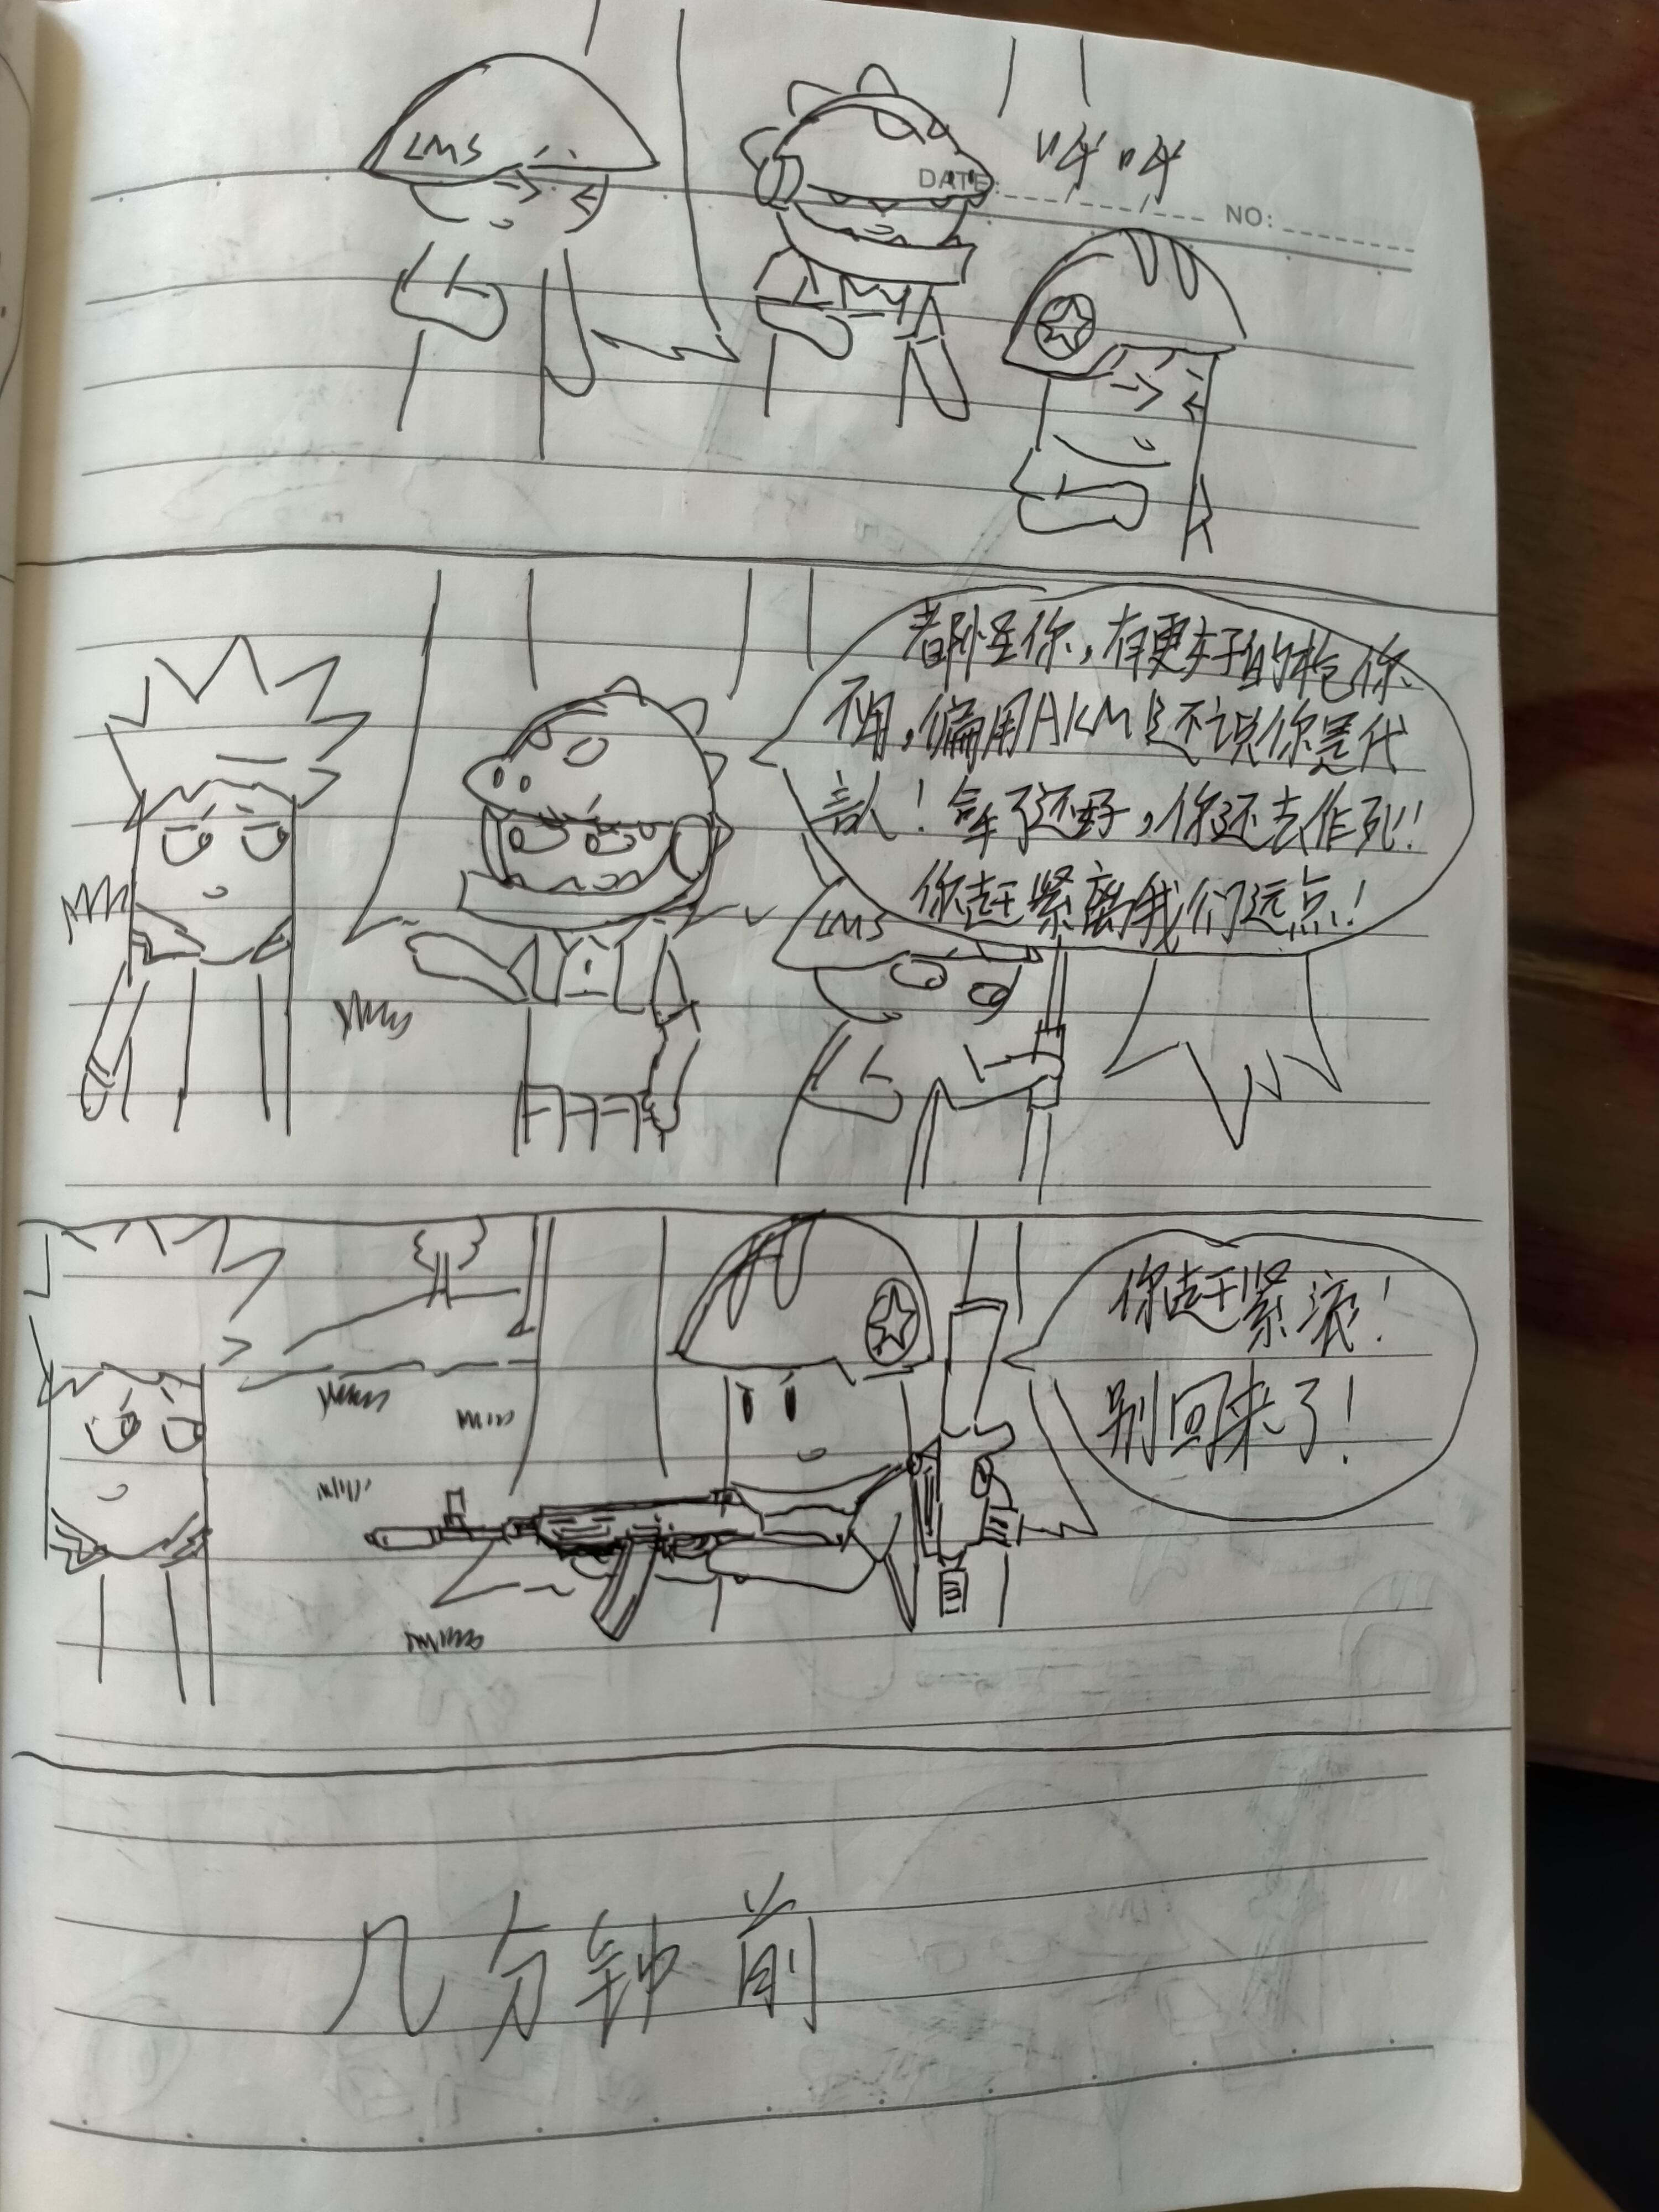 LMS
呼呼
DATE:
NO:
都卧至你,有更好的枪你
不用,偏用AKM 还说你是代
言人! 了还好,你还去作死!!
你赶紧离我们远点!
LMS
你赶紧滚!
别回来了!
几分钟前